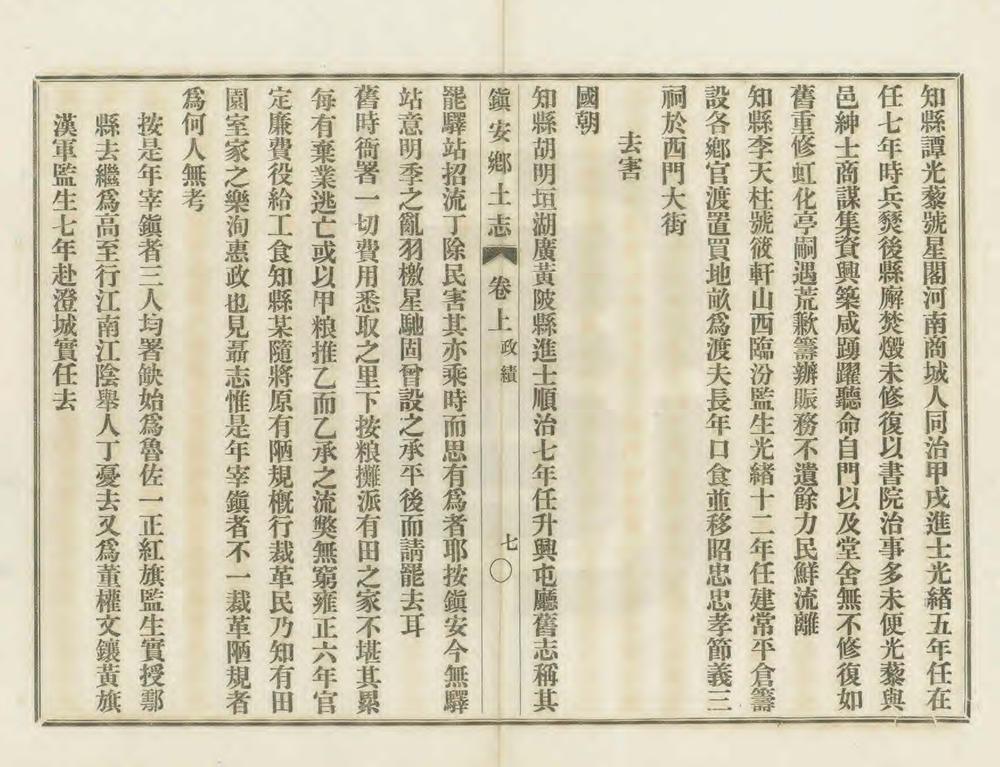 知縣譚光藜號星閣河南商城人同治甲戌進士光緒五年任在
任七年時兵燹後縣廨焚燬未修復以書院治事多未便光藜與
邑紳士商謀集資興築咸踴躍聽命自門以及堂舍無不修復如
舊重修虹化亭嗣遇荒歉籌辦賑務不遺餘力民鮮流離
知縣李天柱號筱軒山西臨汾監生光緒十二年任建常平倉籌
設各鄉官渡置買地畝為渡夫長年口食並移昭忠忠孝節義三
祠於西門大街
去害
國朝
知縣胡明垣湖廣黃陂縣進士順治七年任升興屯廳舊志稱其
鎮安鄉土志 卷上 政績 七〇
罷驛站招流丁除民害其亦乘時而思有為者耶按鎮安今無驛
站意明季之亂羽檄星馳固曾設之承平後而請罷去耳
舊時衙署一切費用悉取之里下按粮攤派有田之家不堪其累
每有棄業逃亡或以甲粮推乙而乙承之流獘無窮雍正六年官
定廉費役給工食知縣某隨將原有陋規概行裁革民乃知有田
園室家之樂洵惠政也見聶志惟是年宰鎮者不一裁革陋規者
為何人無考
按是年宰鎮者三人均署缺始為魯佐一正紅旗監生實授鄠
縣去繼為高至行江南江陰舉人丁憂去又為董權文鑲黃旗
漢軍監生七年赴澄城實任去